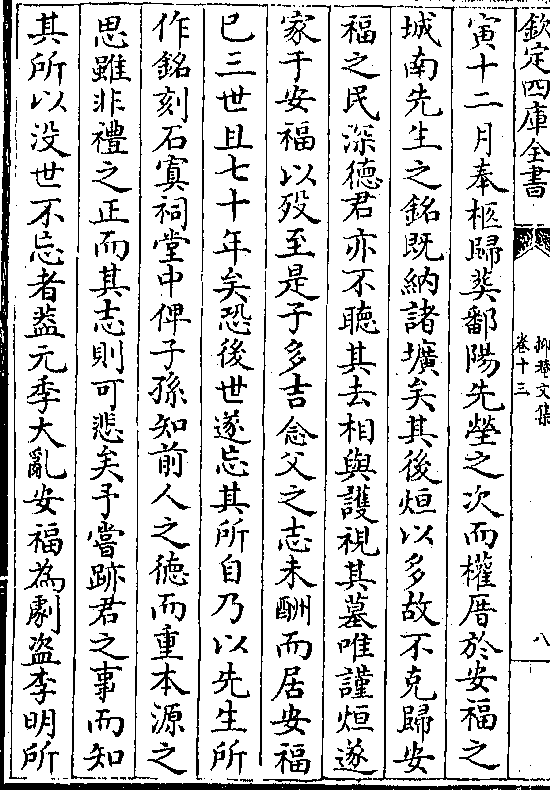 欽定四庫全書
抑菴文集
卷十三
八
寅十二月奉柩歸葬鄱陽先塋之次而權厝於安福之
城南先生之銘既納諸壙矣其後烜以多故不克歸安
福之民深德君亦不聽其去相與護視其墓唯謹烜遂
家于安福以歿至是子多吉念父之志未酬而居安福
巳三世且七十年矣恐後世遂忘其所自乃以先生所
作銘刻石寘祠堂中俾子孫知前人之徳而重本源之
思雖非禮之正而其志則可悲矣予嘗跡君之事而知
其所以没世不忘者葢元季大亂安福為劇盗李明所